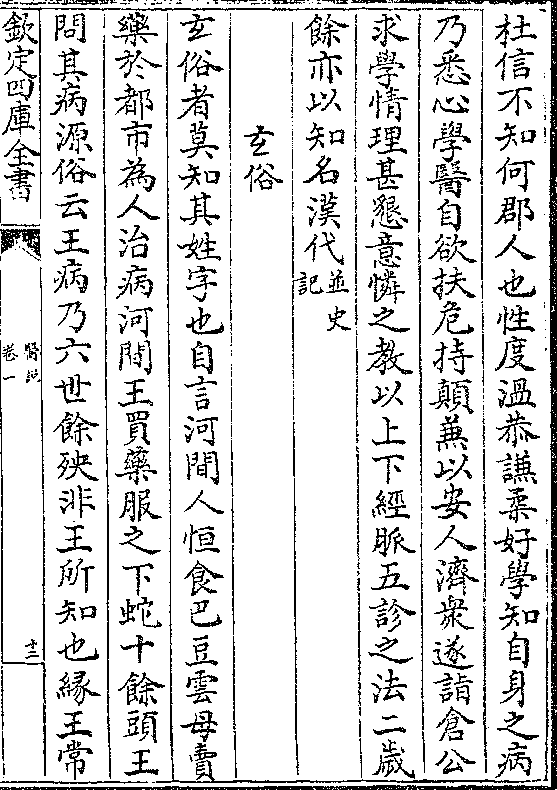 杜信不知何郡人也性度溫恭謙柔好學知自身之病
乃悉心學醫自欲扶危持顛兼以安人濟衆遂詣倉公
求學情理甚懇意憐之教以上下經脈五診之法二歲
餘亦以知名漢代並史記
玄俗
玄俗者莫知其姓字也自言河間人恒食巴豆雲母賣
藥於都市為人治病河間王買藥服之下蛇十餘頭王
問其病源俗云王病乃六世餘殃非王所知也緣王常
欽定四庫全書
醫說
卷一
十三